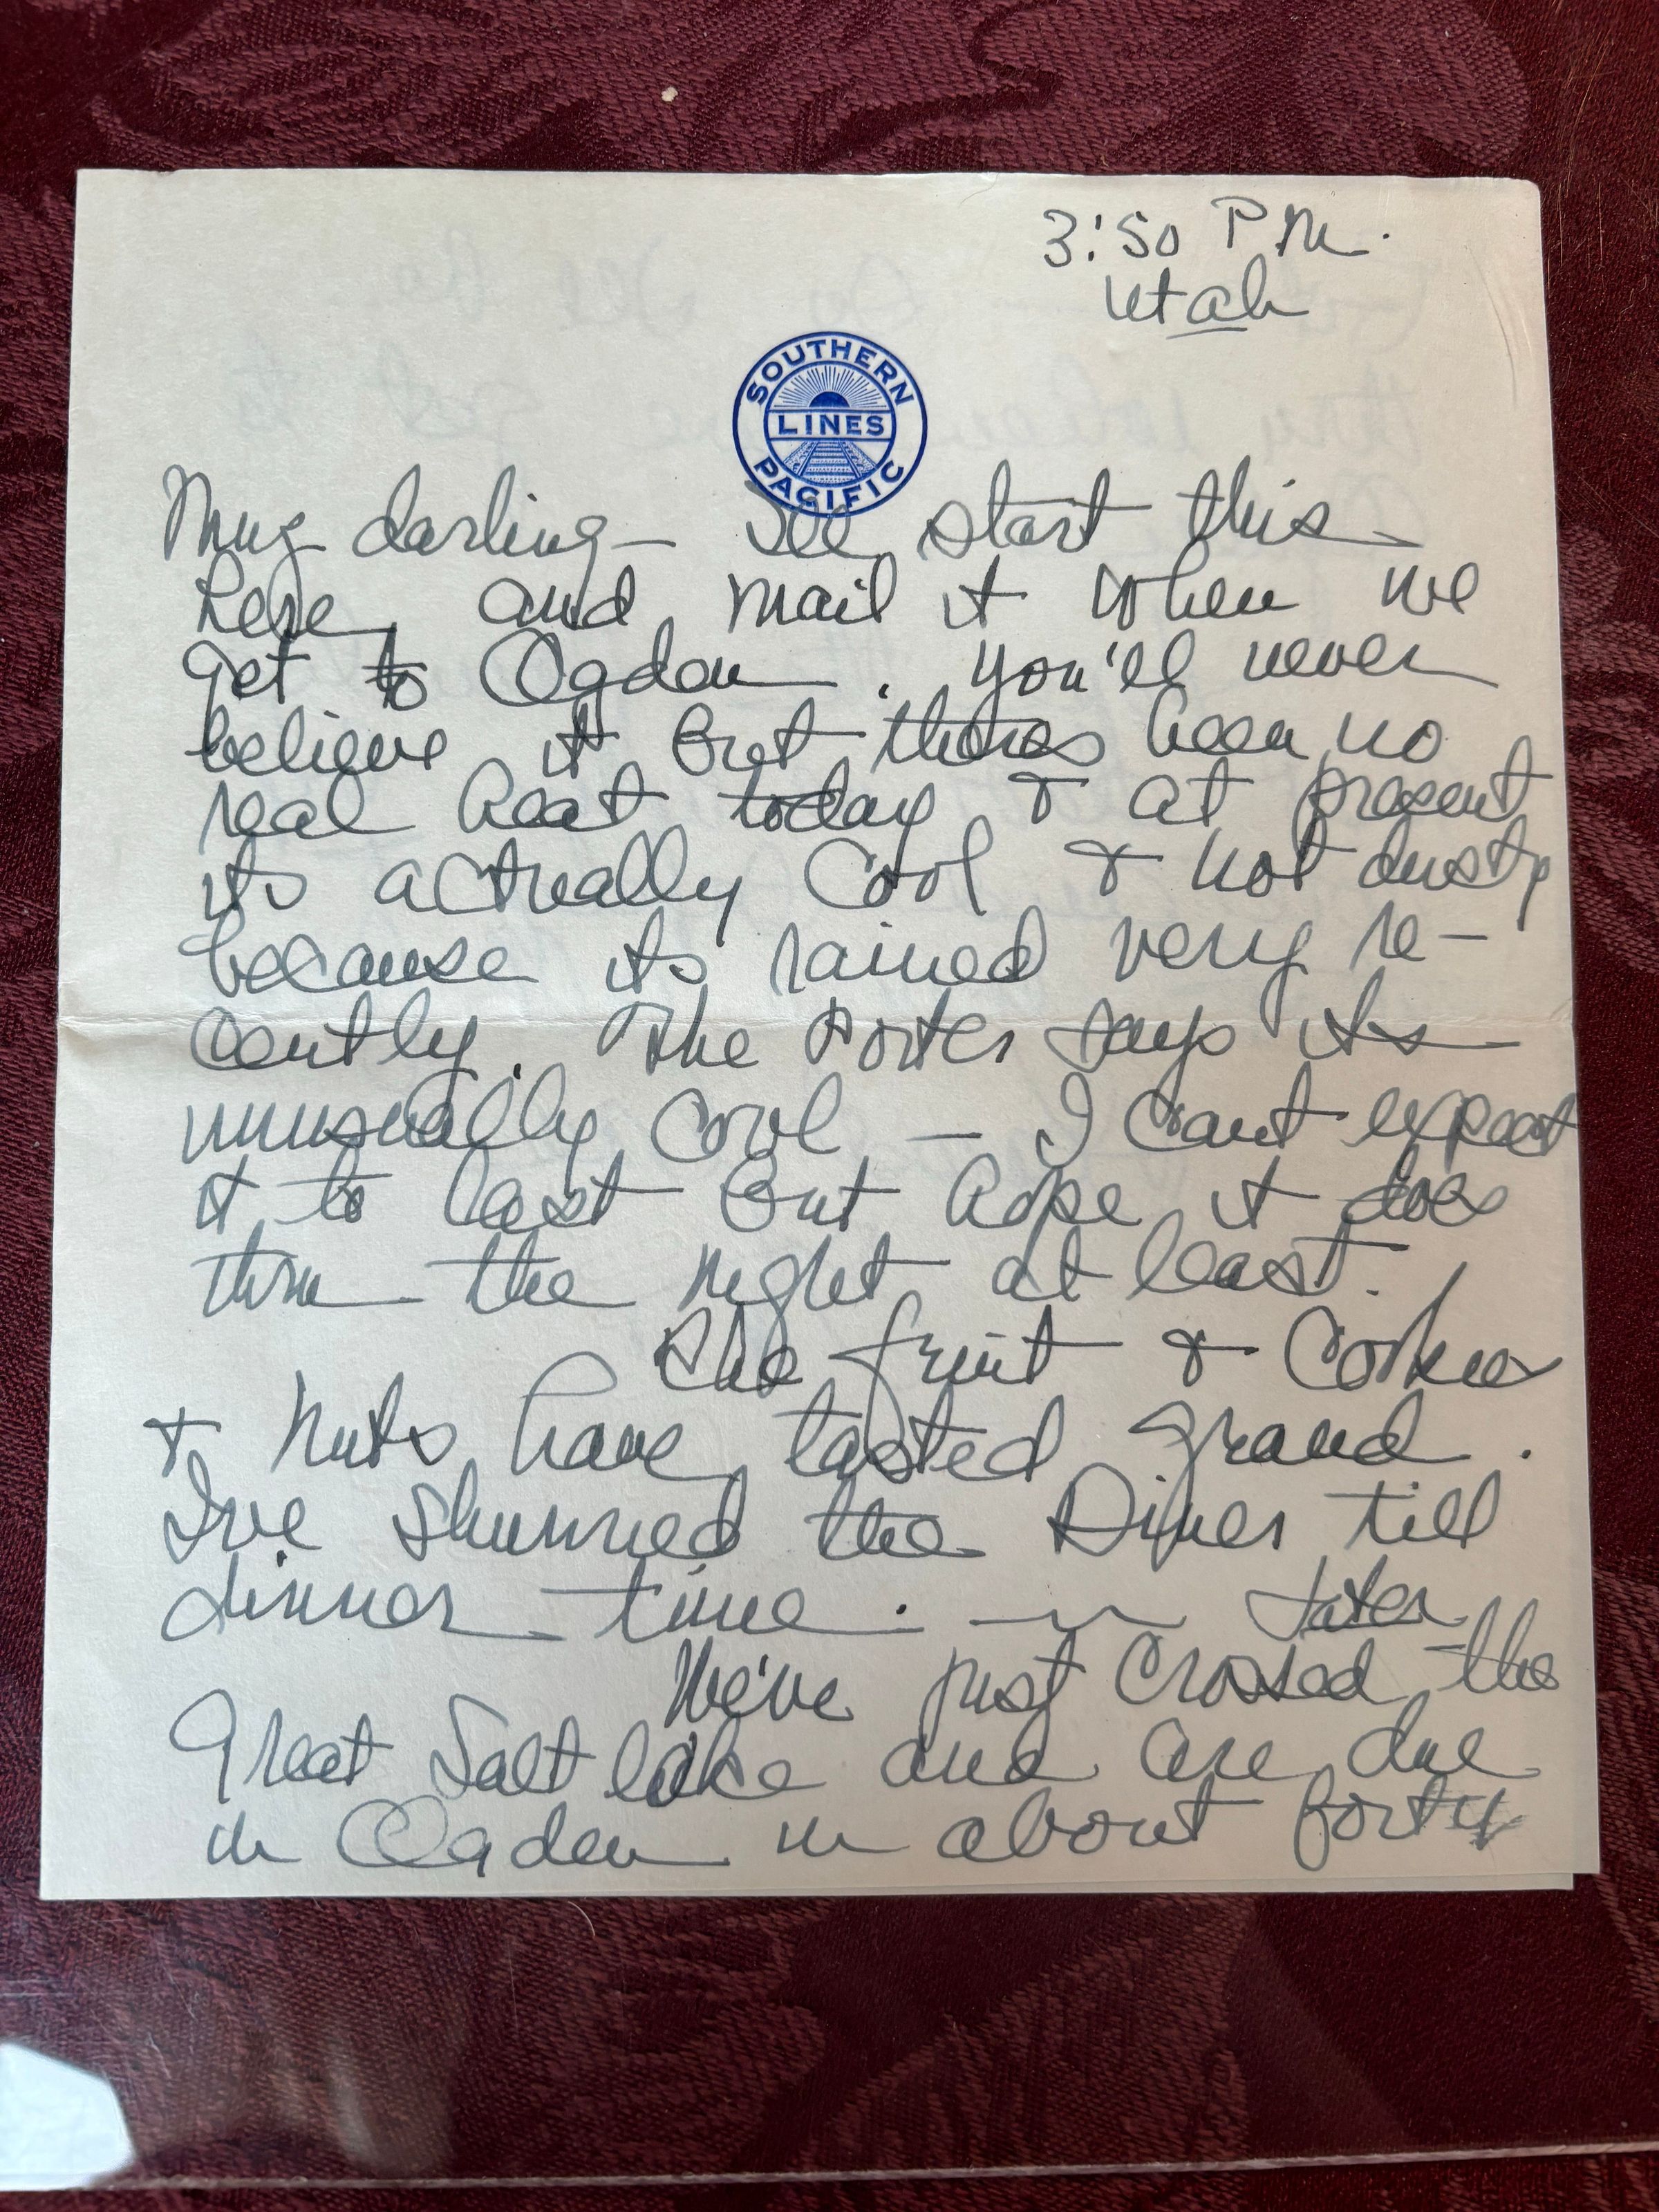 3:50 P.M.
Utah
SOUTHERN
LINES
PACIFIC
Mug darling — I'll start this
here and mail it when we
get to Ogden. You'll never
believe it but theres been no
real heat today & at present
its actually cool & not dusty
because its rained very re-
cently. The Porter says its
unusually cool — I cant expect
it to last but hope it does
thru the night at least.
The fruit & Cookies
& nuts have tasted grand.
I've shunned the Diner till
dinner time. — Later
We've just crossed the
Great Salt lake and are due
in Ogden in about forty